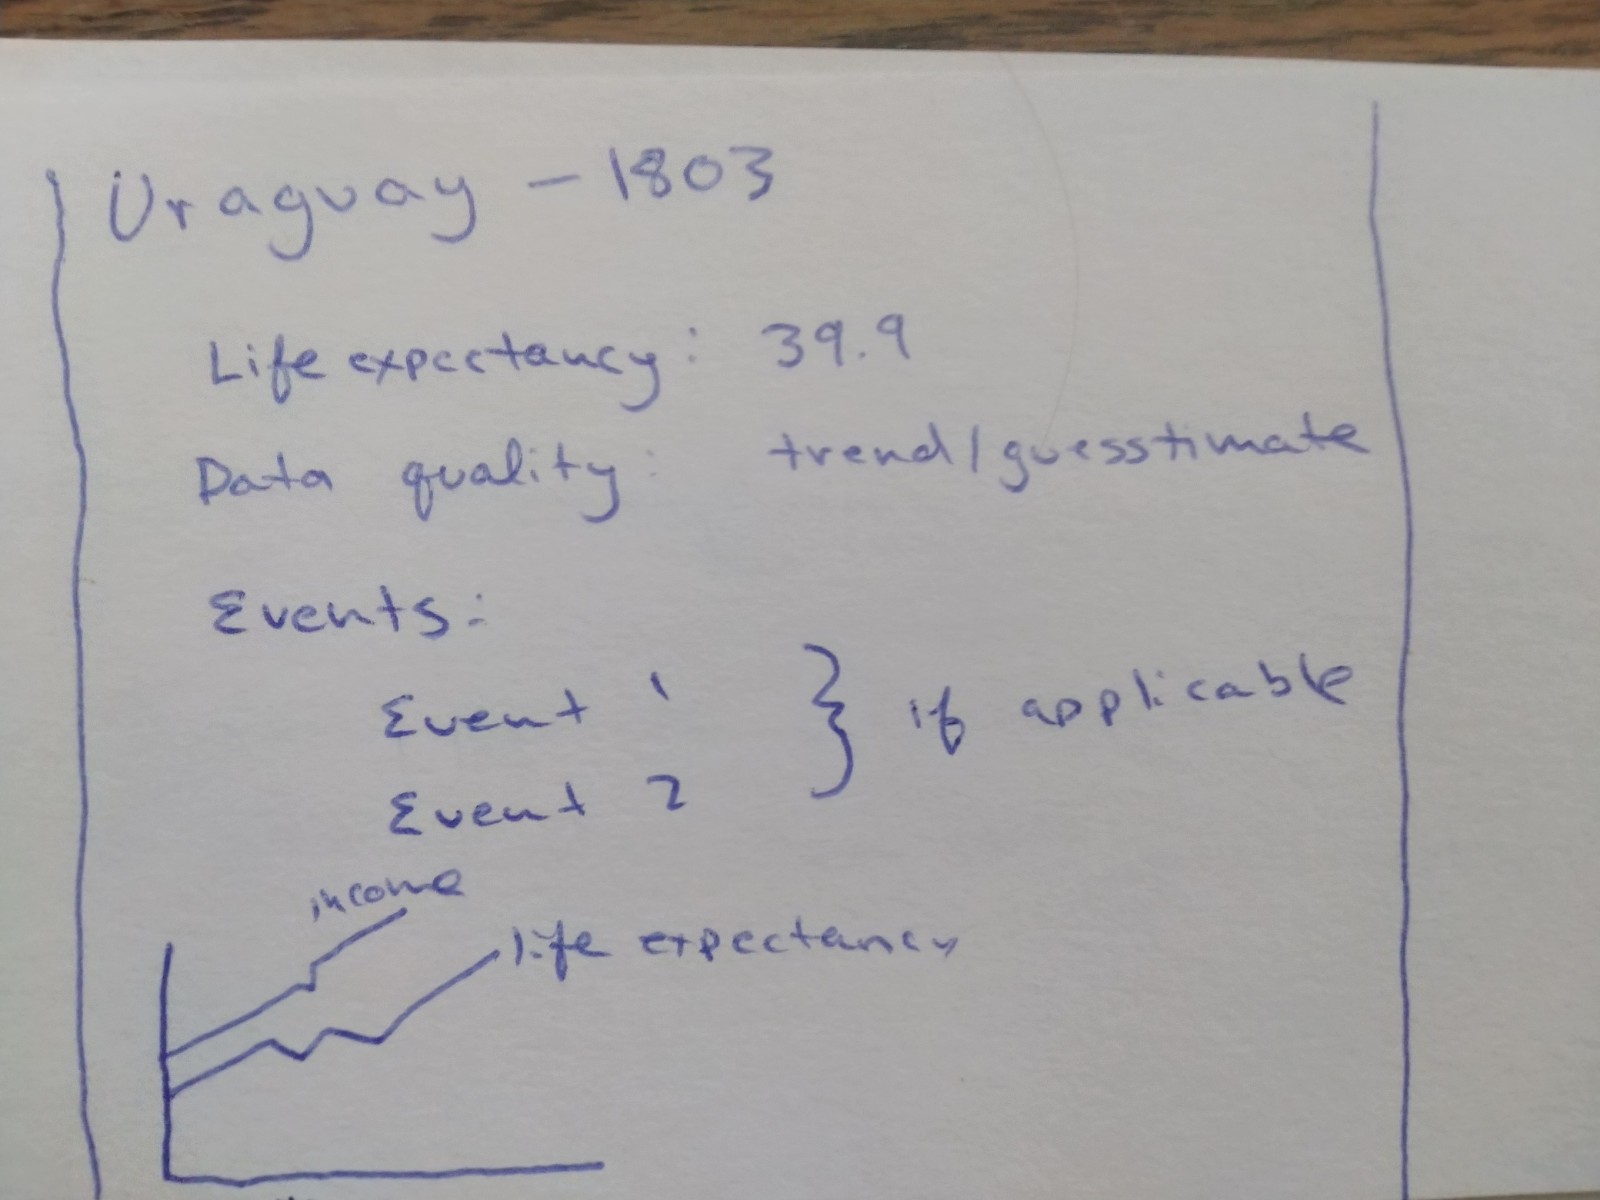 Uraguay - 1803
Life expectancy: 39.9
Data quality: trend/guesstimate
Events:
Event 1
Event 2
} if applicable
income
life expectancy